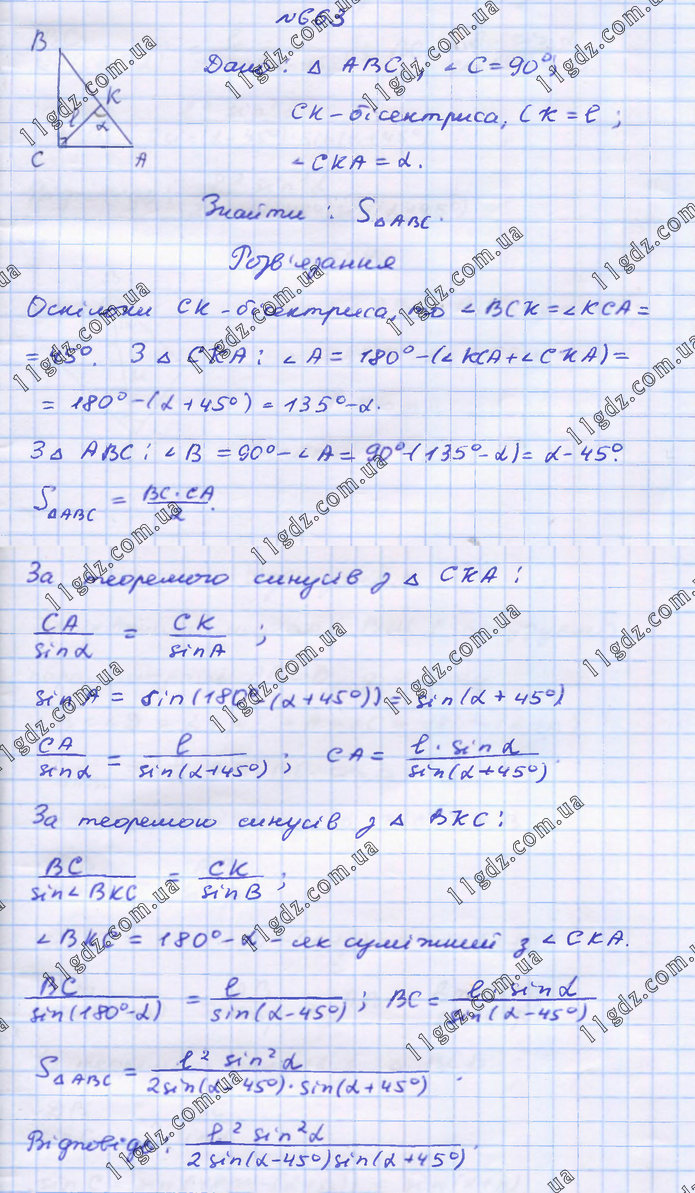 №663
B
K
l
α
C
A
Дано: △ ABC, ∠C=90°,
CK-бісектриса, CK=l;
∠CKA=α.
Знайти: S△ABC.
Розв'язання
Оскільки CK-бісектриса, то ∠BCK=∠KCA=
=45°. З △ CKA: ∠A=180°-(∠KCA+∠CKA)=
=180°-(α+45°)=135°-α.
З △ ABC: ∠B=90°-∠A=90°-(135°-α)=α-45°.
S△ABC = BC·CA/2.
За теоремою синусів з △ CKA:
CA/sinα = CK/sinA;
sinA = sin(180°-(α+45°))=sin(α+45°)
CA/sinα = l/sin(α+45°); CA = l·sinα/sin(α+45°).
За теоремою синусів з △ BKC:
BC/sin∠BKC = CK/sinB;
∠BKC=180°-α-як суміжний з ∠CKA.
BC/sin(180°-α) = l/sin(α-45°); BC = l·sinα/sin(α-45°)
S△ABC = l² sin²α/2sin(α-45°)·sin(α+45°).
Відповідь: l² sin²α/2sin(α-45°)sin(α+45°).
11gdz.com.ua